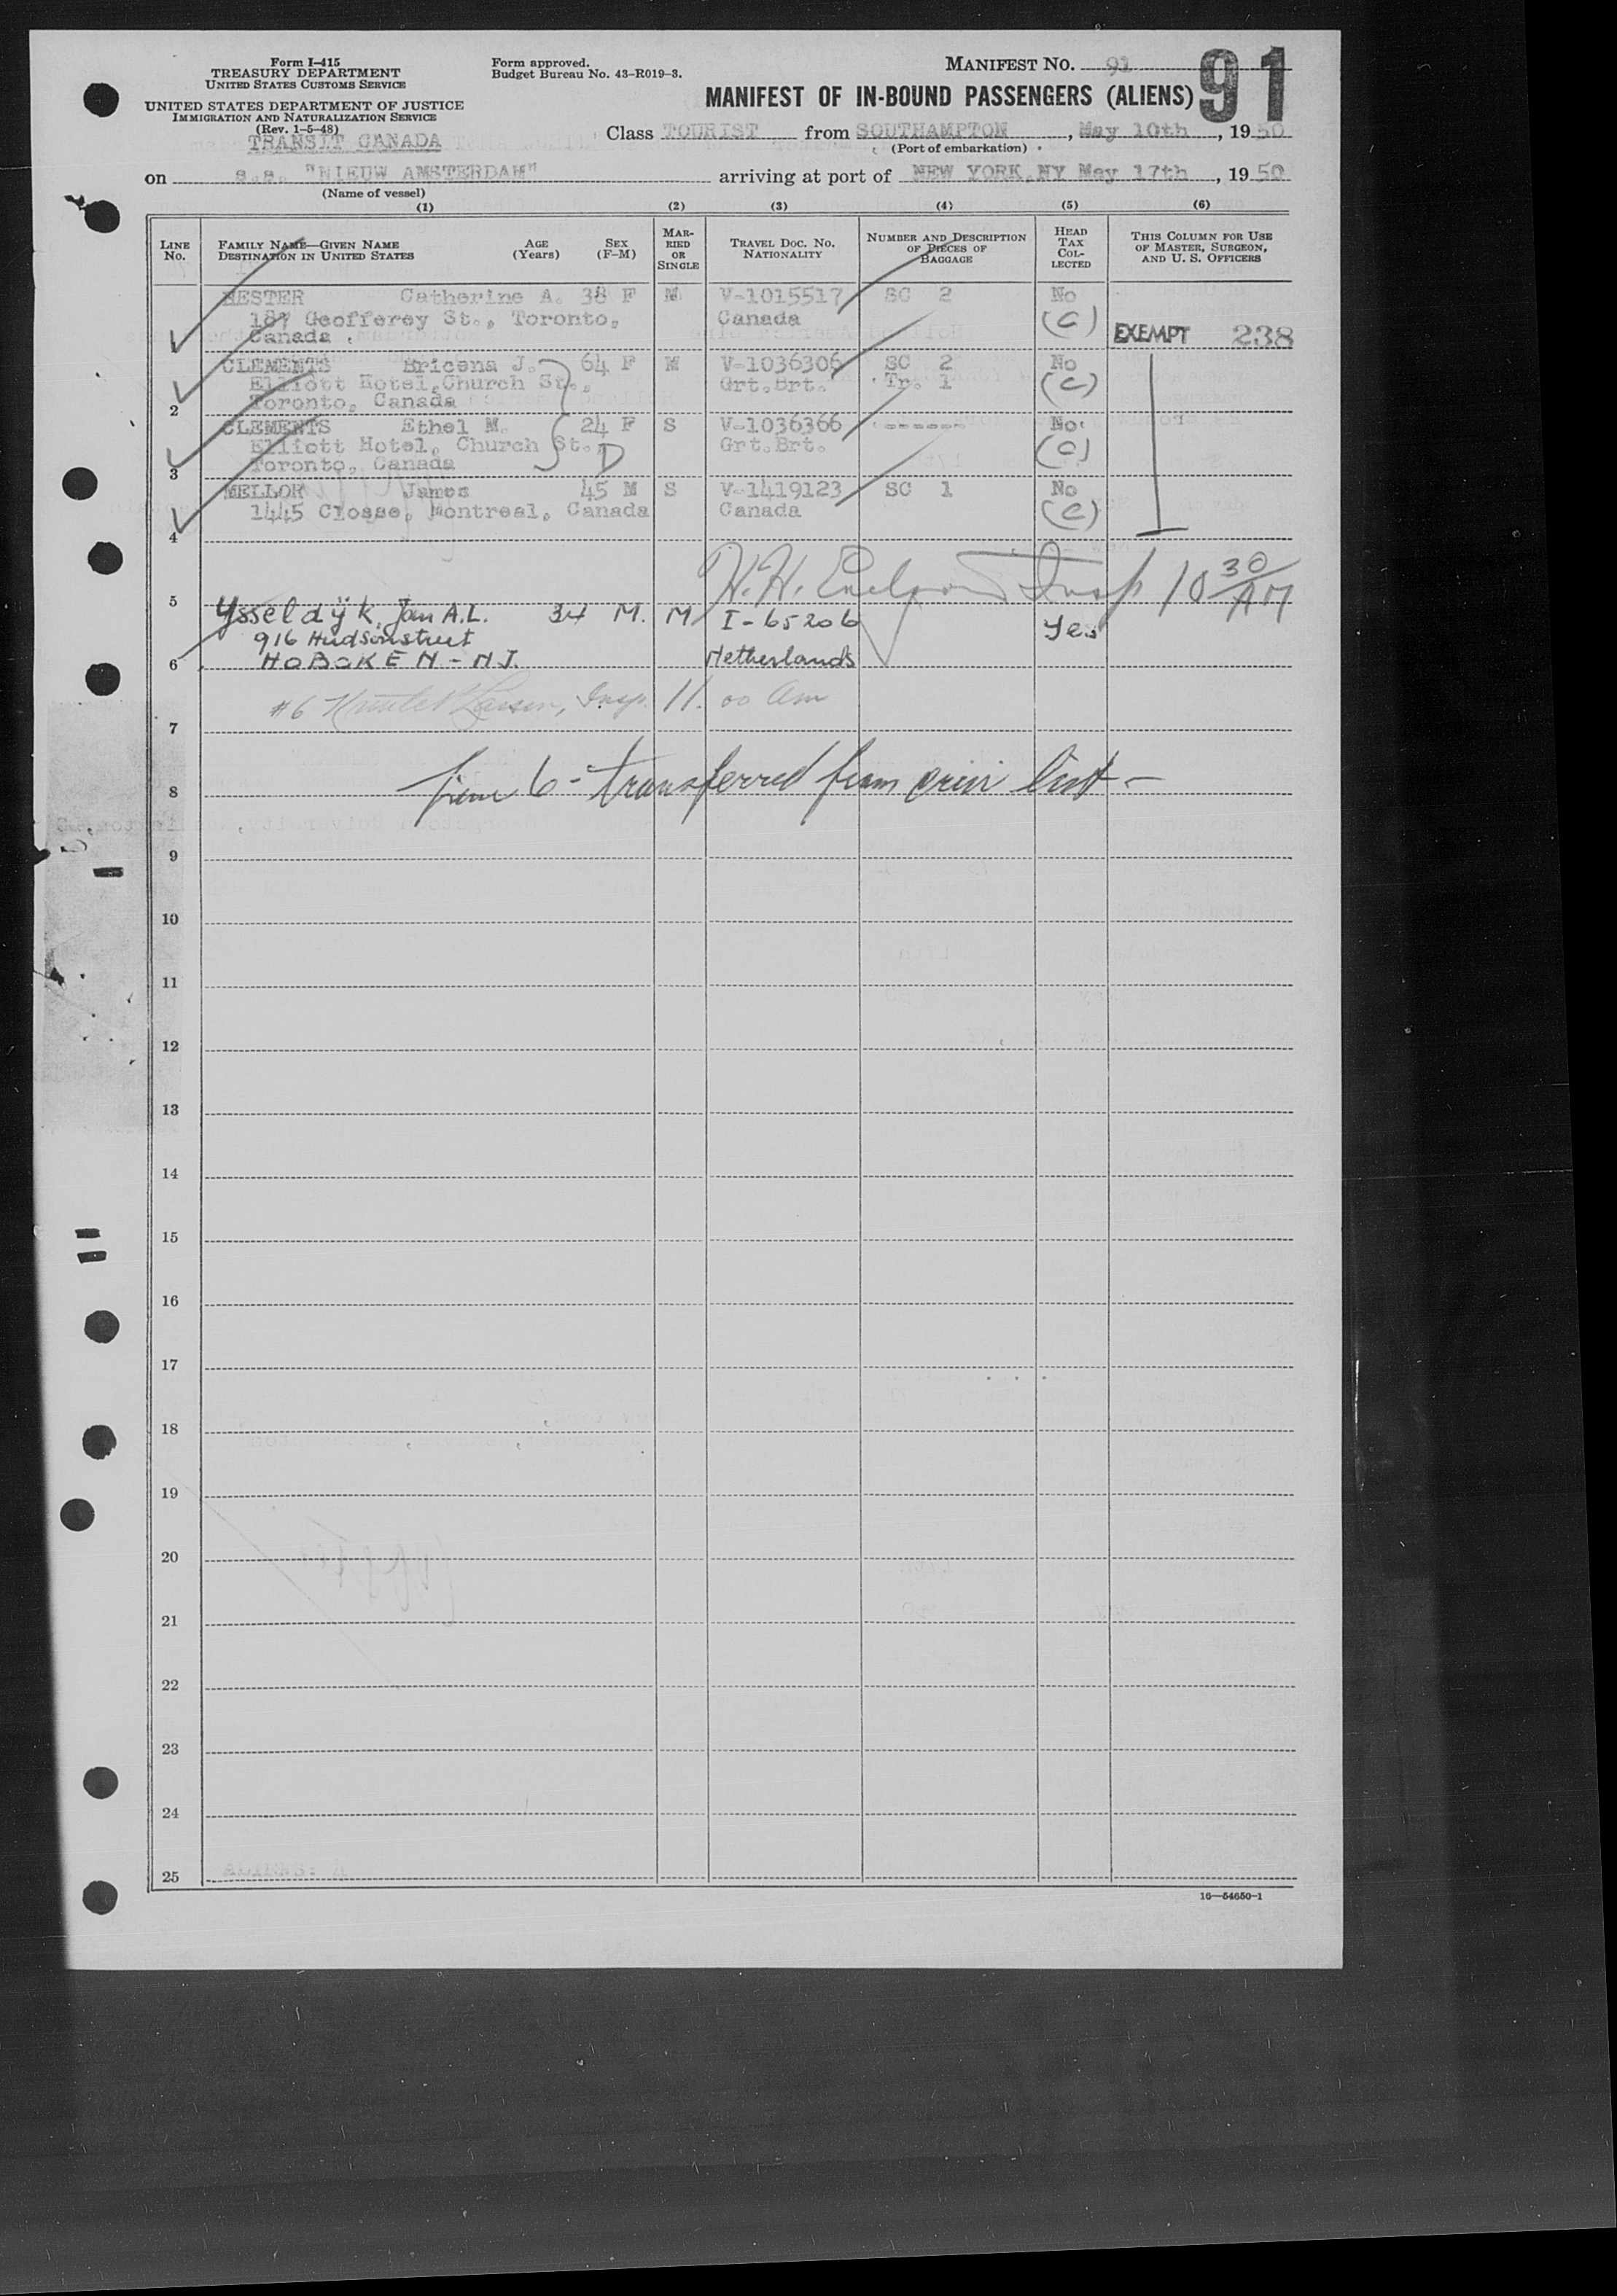 Form I-415
TREASURY DEPARTMENT
UNITED STATES CUSTOMS SERVICE
UNITED STATES DEPARTMENT OF JUSTICE
IMMIGRATION AND NATURALIZATION SERVICE
(Rev. 1-5-48)
TRANSIT CANADA
Form approved.
Budget Bureau No. 43-R019-3.
MANIFEST NO. 91
91
MANIFEST OF IN-BOUND PASSENGERS (ALIENS)
Class TOURIST from SOUTHAMPTON, May 10th, 1950
(Port of embarkation)
on s.s. "NIEUW AMSTERDAM" arriving at port of NEW YORK, NY May 17th, 1950
(Name of vessel)
(1) (2) (3) (4) (5) (6)
LINE NO. FAMILY NAME—GIVEN NAME DESTINATION IN UNITED STATES AGE (Years) SEX (F-M) MARRIED OR SINGLE TRAVEL DOC. NO. NATIONALITY NUMBER AND DESCRIPTION OF PIECES OF BAGGAGE HEAD TAX COLLECTED THIS COLUMN FOR USE OF MASTER, SURGEON, AND U. S. OFFICERS
Catherine A. 38 F M V-1015517 SC 2 No
187 Geofferey St., Toronto, Canada (C)
Canada EXEMPT 238
CLEMENTS Bricena J. 64 F M V-1036306 SC 2 No
Elliott Hotel, Church St., Grt.Brt. Tr. 1 (C)
2 Toronto, Canada
CLEMENTS Ethel M. 24 F S V-1036366 ------ No
Elliott Hotel, Church St., Grt.Brt. (C)
3 Toronto, Canada D
MELLOR James 45 M S V-1419123 SC 1 No
1445 Closse, Montreal, Canada Canada (C)
4
Insp 10 30/AM
5
Ysseldÿk, Jan A.L. 34 M. M I-65206 Yes
916 Hudsonstreet
6 HOBOKEN - N.J. Netherlands
#6 Larsen, Insp. 11.00 am
7
Line 6 - transferred from crew list -
8
9
10
11
12
13
14
15
16
17
18
19
20
21
22
23
24
25
16—54650-1